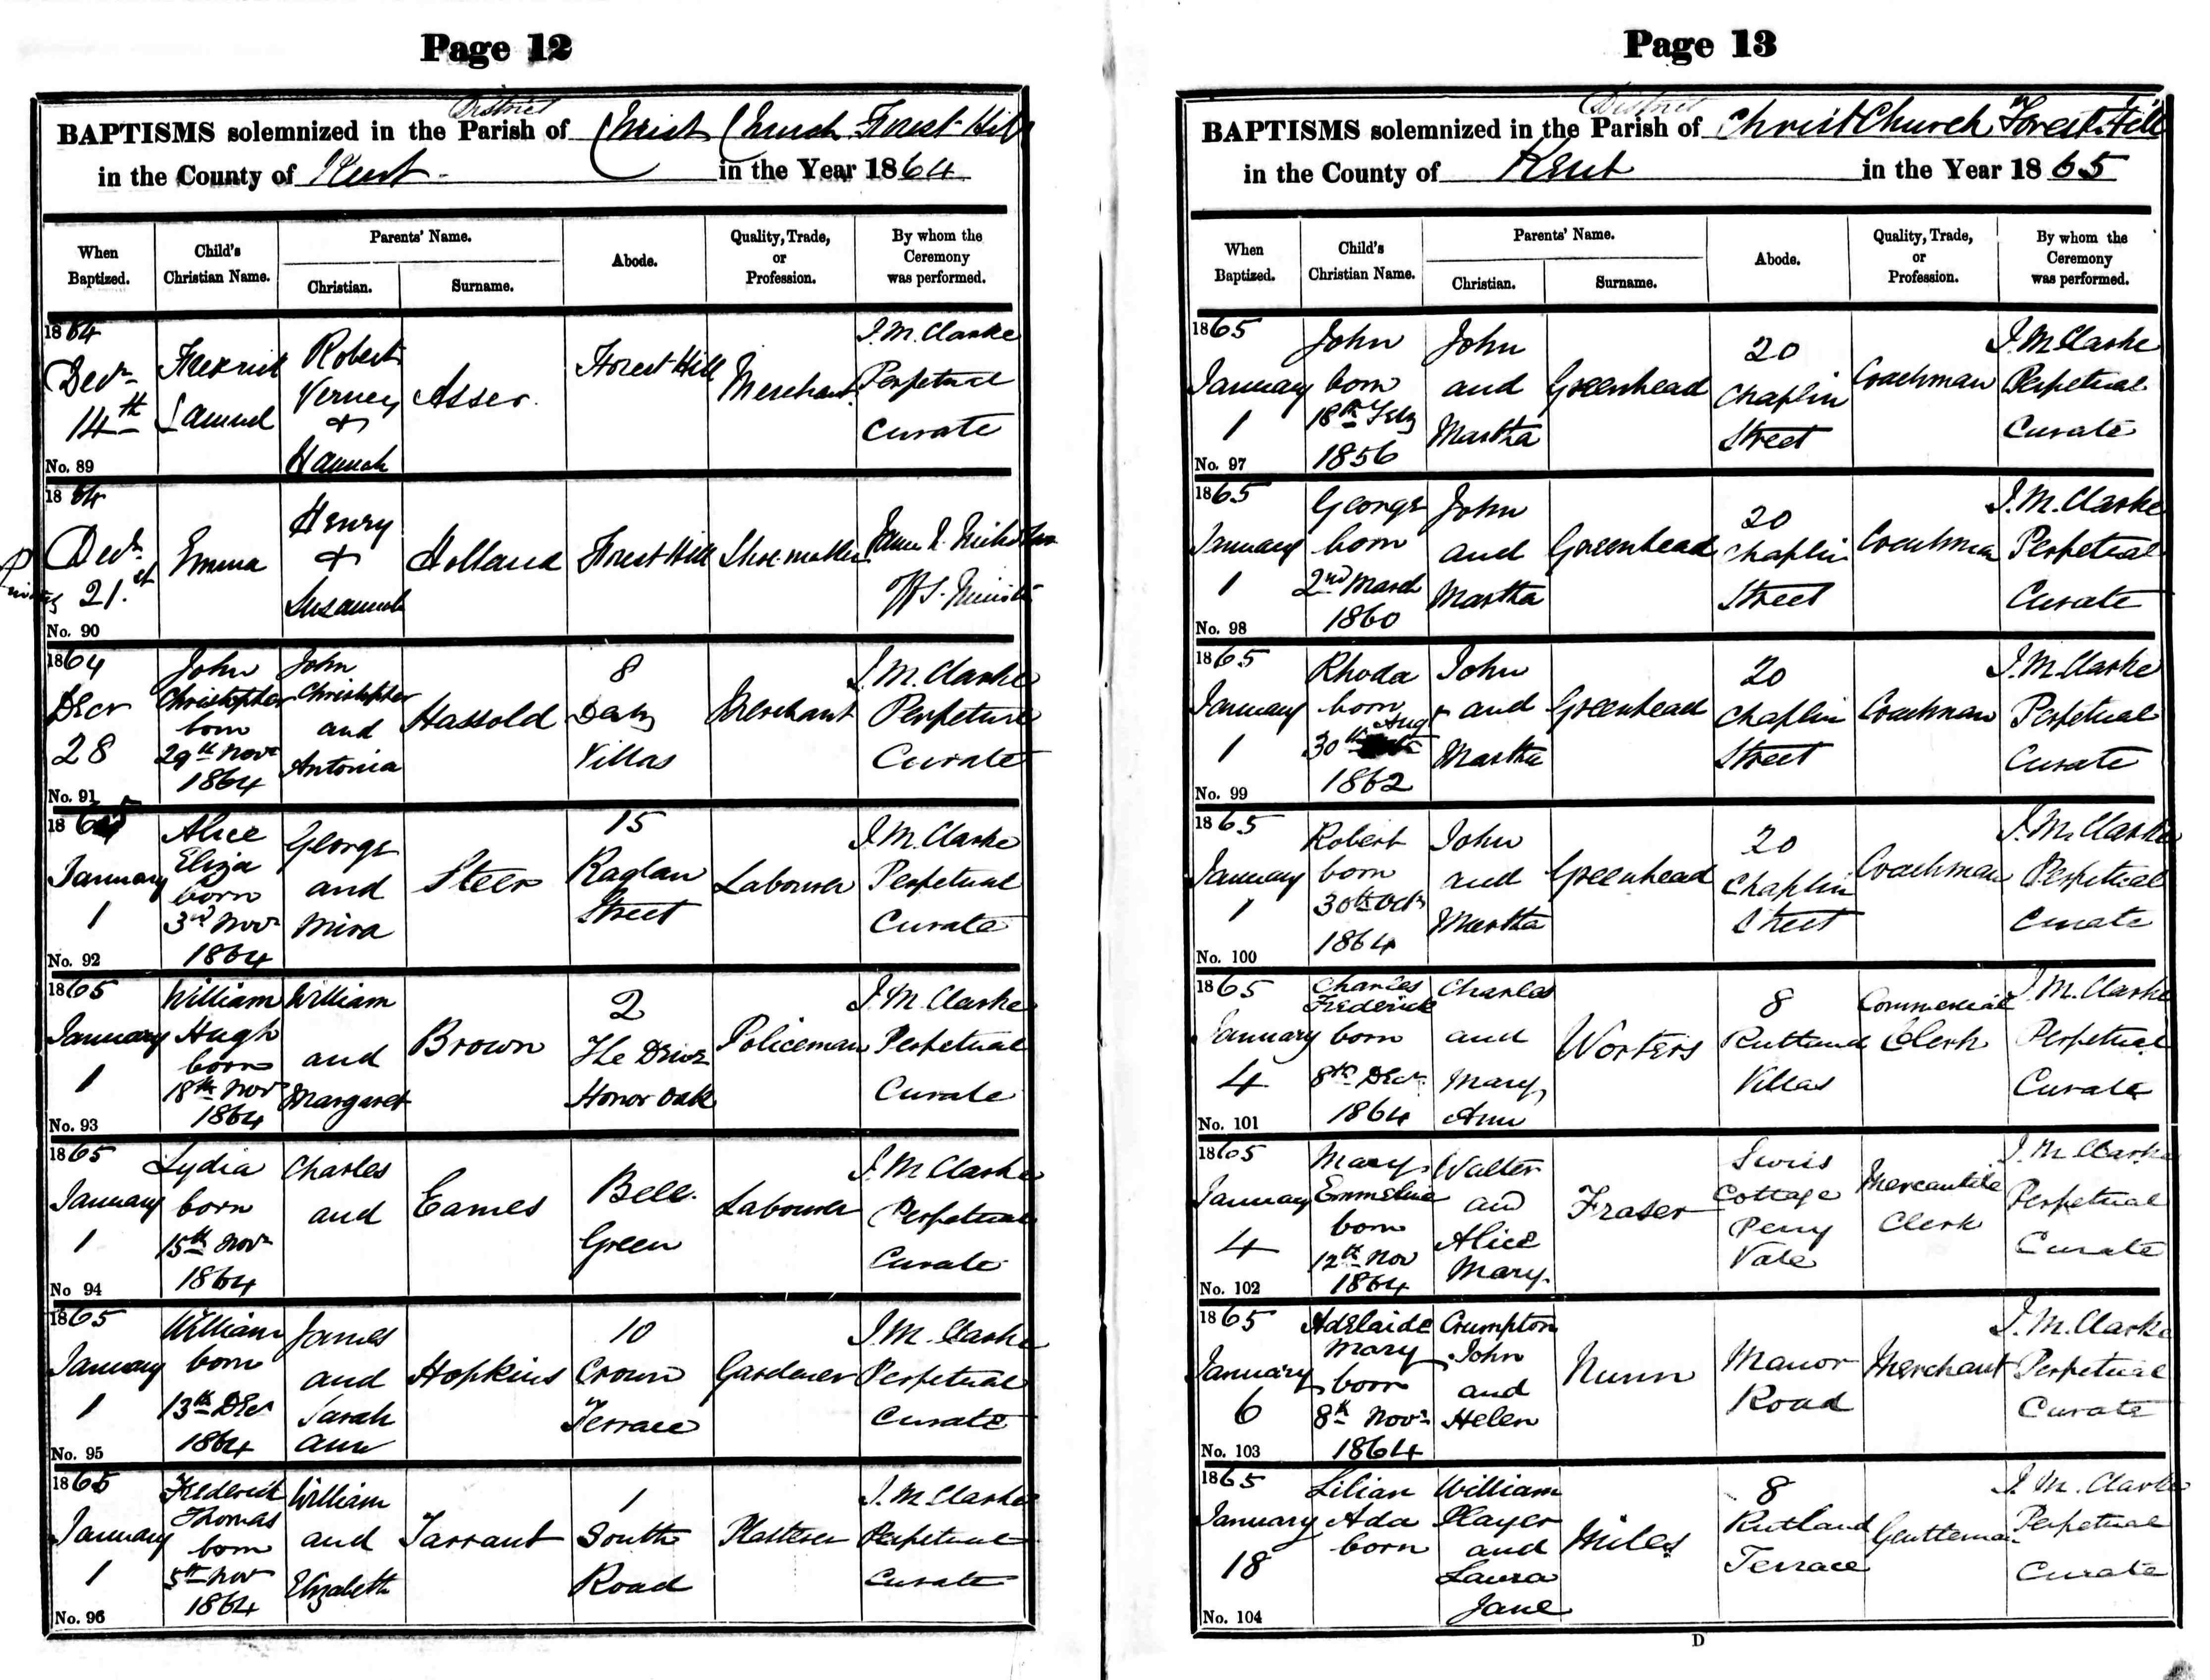 Page 12
BAPTISMS solemnized in the District Parish of Christ Church Forest Hill
in the County of Kent in the Year 1864
When Baptized.
Child's Christian Name.
Parents' Name.
Christian.
Surname.
Abode.
Quality, Trade, or Profession.
By whom the Ceremony was performed.
1864
Decr 14th
No. 89
Samuel
Robert
Verney
+
Hannah
Asser.
Forest Hill
Merchant
J. M. Clarke
Perpetual
Curate
1864
Decr 21.st
No. 90
Emma
Henry
+
Susannah
Holland
Forest Hill
Shoe-maker
1864
Decr
28
No. 91
John
Christopher
born
29th Novr
1864
John
Christopher
and
Antonia
Hassold
8
Villas
Merchant
J. M. Clarke
Perpetual
Curate
1865
January
1
No. 92
Alice
Eliza
born
3rd Novr
1864
George
and
Mira
Steer
15
Raglan
Street
Labourer
J. M. Clarke
Perpetual
Curate
1865
January
1
No. 93
William
Hugh
born
18th Novr
1864
William
and
Margaret
Brown
2
The Drive
Honor Oak
Policeman
J. M. Clarke
Perpetual
Curate
1865
January
1
No 94
Lydia
born
15th Novr
1864
Charles
and
Eames
Bell
Green
Labourer
J. M. Clarke
Perpetual
Curate
1865
January
1
No. 95
William
born
13th Decr
1864
James
and
Sarah
Ann
Hopkins
10
Crown
Terrace
Gardener
J. M. Clarke
Perpetual
Curate
1865
January
1
No. 96
Frederick
Thomas
born
5th Novr
1864
William
and
Elizabeth
Tarrant
1
South
Road
Plasterer
J. M. Clarke
Perpetual
Curate
Page 13
BAPTISMS solemnized in the District Parish of Christ Church Forest Hill
in the County of Kent in the Year 1865
When Baptized.
Child's Christian Name.
Parents' Name.
Christian.
Surname.
Abode.
Quality, Trade, or Profession.
By whom the Ceremony was performed.
1865
January
1
No. 97
John
born
18th July
1856
John
and
Martha
Greenhead
20
Chaplin
Street
Coachman
J. M. Clarke
Perpetual
Curate
1865
January
1
No. 98
George
born
2nd March
1860
John
and
Martha
Greenhead
20
Chaplin
Street
Coachman
J. M. Clarke
Perpetual
Curate
1865
January
1
No. 99
Rhoda
born
30th Augt
1862
John
and
Martha
Greenhead
20
Chaplin
Street
Coachman
J. M. Clarke
Perpetual
Curate
1865
January
1
No. 100
Robert
born
30th Octr
1864
John
and
Martha
Greenhead
20
Chaplin
Street
Coachman
J. M. Clarke
Perpetual
Curate
1865
January
4
No. 101
Charles
Frederick
born
8th Decr
1864
Charles
and
Mary
Ann
Worters
8
Rutland
Villas
Commercial
Clerk
J. M. Clarke
Perpetual
Curate
1865
January
4
No. 102
Mary
Emmeline
born
12th Nov
1864
Walter
and
Alice
Mary.
Fraser
Swiss
Cottage
Perry
Vale
Mercantile
Clerk
J. M. Clarke
Perpetual
Curate
1865
January
6
No. 103
Adelaide
Mary
born
8th Novr
1864
Crumpton
John
and
Helen
Nunn
Manor
Road
Merchant
J. M. Clarke
Perpetual
Curate
1865
January
18
No. 104
Lilian
Ada
born
William
Player
and
Laura
Jane
Miles
8
Rutland
Terrace
Gentleman
J. M. Clarke
Perpetual
Curate
D